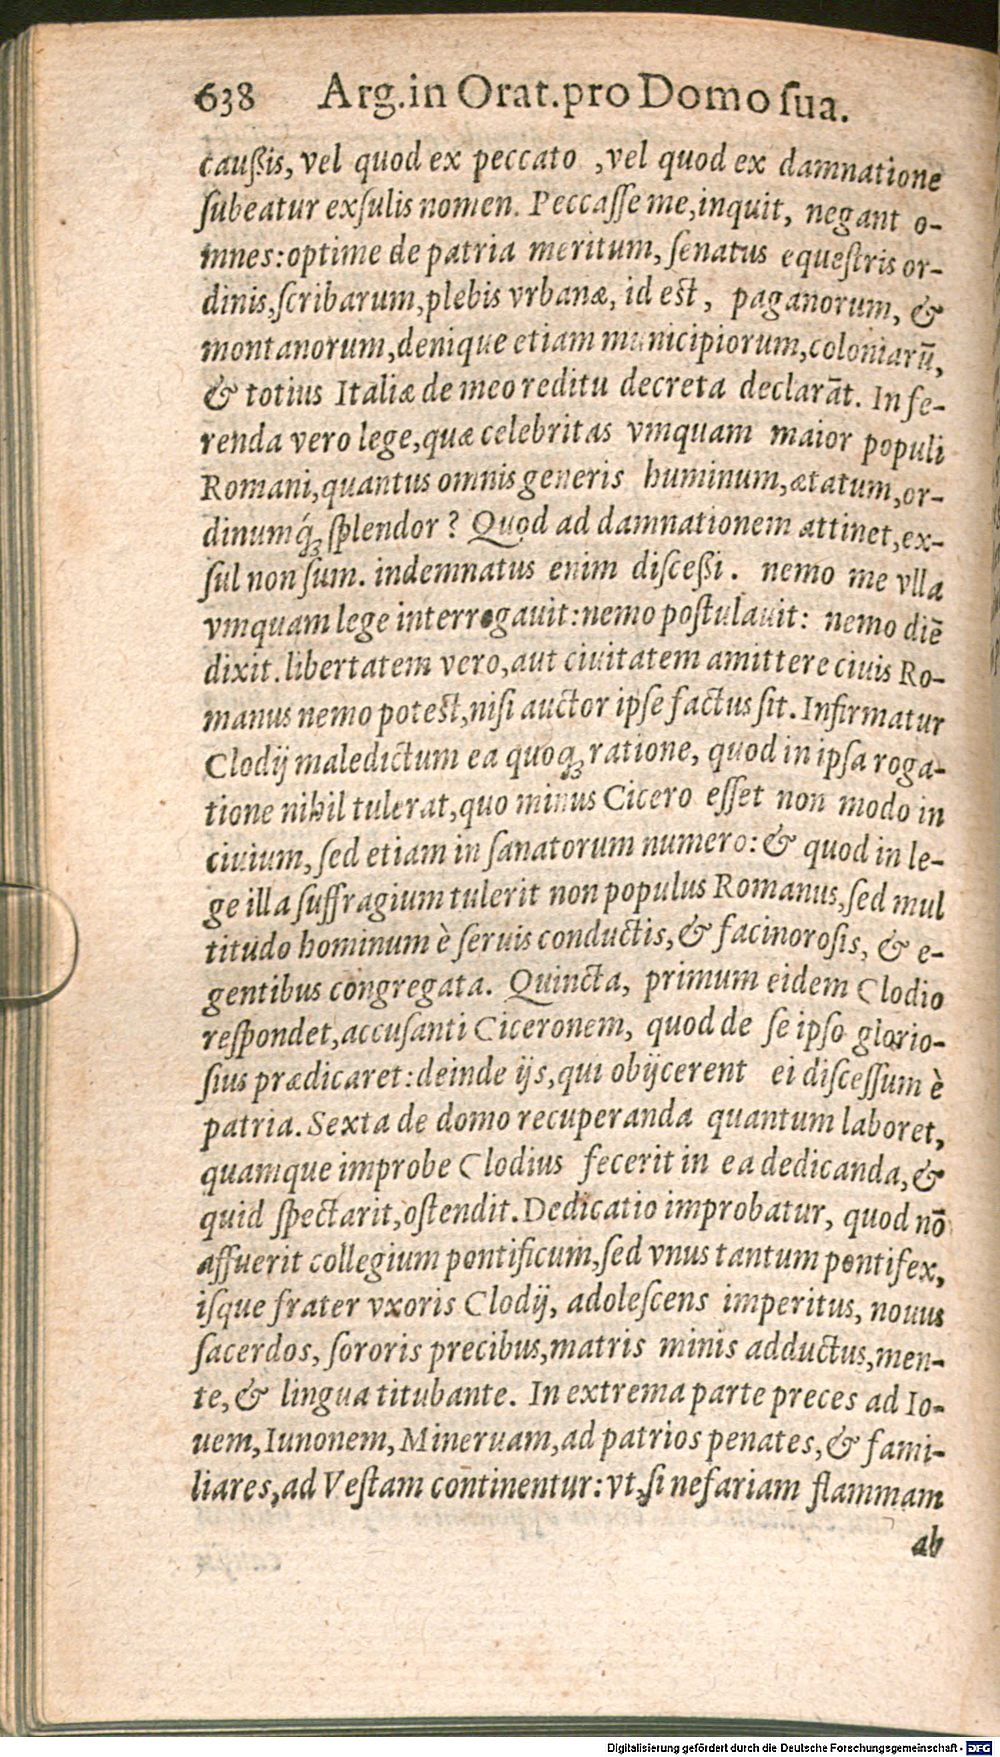 638 Arg.in Orat.pro Domo ſua.
cauſsis, vel quod ex peccato ,vel quod ex damnatione
ſubeatur exſulis nomen. Peccaſſe me,inquit, negant o-
mnes:optime de patria meritum, ſenatus equeſtris or-
dinis,ſcribarum,plebis vrbanæ, id eſt, paganorum, &
montanorum,denique etiam municipiorum,coloniarū,
& totius Italiæ de meo reditu decreta declarāt. In fe-
renda vero lege,quæ celebritas vmquam maior populi
Romani,quantus omnis generis huminum,ætatum,or-
dinumq́ꝫ ſplendor? Quod ad damnationem attinet,ex-
ſul non ſum. indemnatus enim diſceſsi. nemo me vlla
vmquam lege interrogauit:nemo poſtulauit: nemo diē
dixit.libertatem vero,aut ciuitatem amittere ciuis Ro-
manus nemo poteſt,niſi auctor ipſe factus ſit. Infirmatur
Clodij maledictum ea quoqꝫ ratione, quod in ipſa roga-
tione nihil tulerat,quo minus Cicero eſſet non modo in
ciuium, ſed etiam in ſanatorum numero:& quod in le-
ge illa ſuffragium tulerit non populus Romanus,ſed mul
titudo hominum è ſeruis conductis,& facinoroſis, & e-
gentibus congregata. Quincta, primum eidem Clodio
reſpondet,accuſanti Ciceronem, quod de ſe ipſo glorio-
ſius prædicaret:deinde ijs,qui obijcerent ei diſceſſum è
patria. Sexta de domo recuperanda quantum laboret,
quamque improbe Clodius fecerit in ea dedicanda,&
quid ſpectarit,oſtendit.Dedicatio improbatur, quod nō
affuerit collegium pontificum,ſed vnus tantum pontifex,
iſque frater vxoris Clodij, adoleſcens imperitus, nouus
ſacerdos, ſororis precibus,matris minis adductus,men-
te,& lingua titubante. In extrema parte preces ad Io-
uem,Iunonem,Mineruam,ad patrios penates,& fami-
liares,ad Veſtam continentur:vt,ſi nefariam flammam
ab
Digitalisierung gefördert durch die Deutsche Forschungsgemeinschaft - DFG